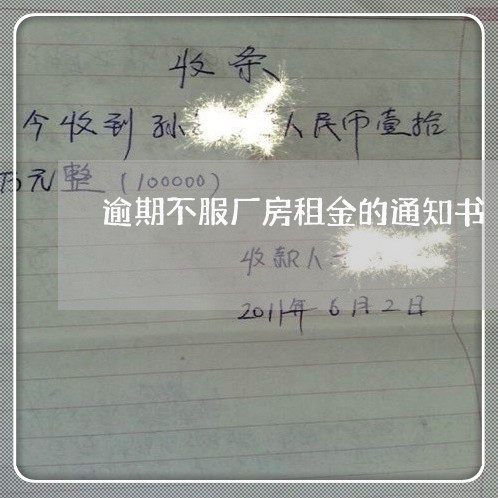 收条
今收到孙 人民币壹拾
万元整(100000)
逾期不服厂房租金的通知书
收款人
2011年6月2日